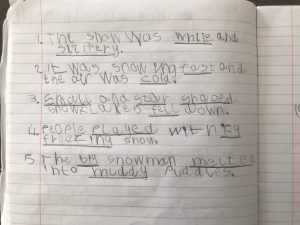 1. The snow was white and
slippery.
2. It was snowing fast and
the air was cold.
3. Small and star shaped
snowflakes fell down.
4. People played with icy
freezing snow.
5 The big snowman melted
into muddy puddles.